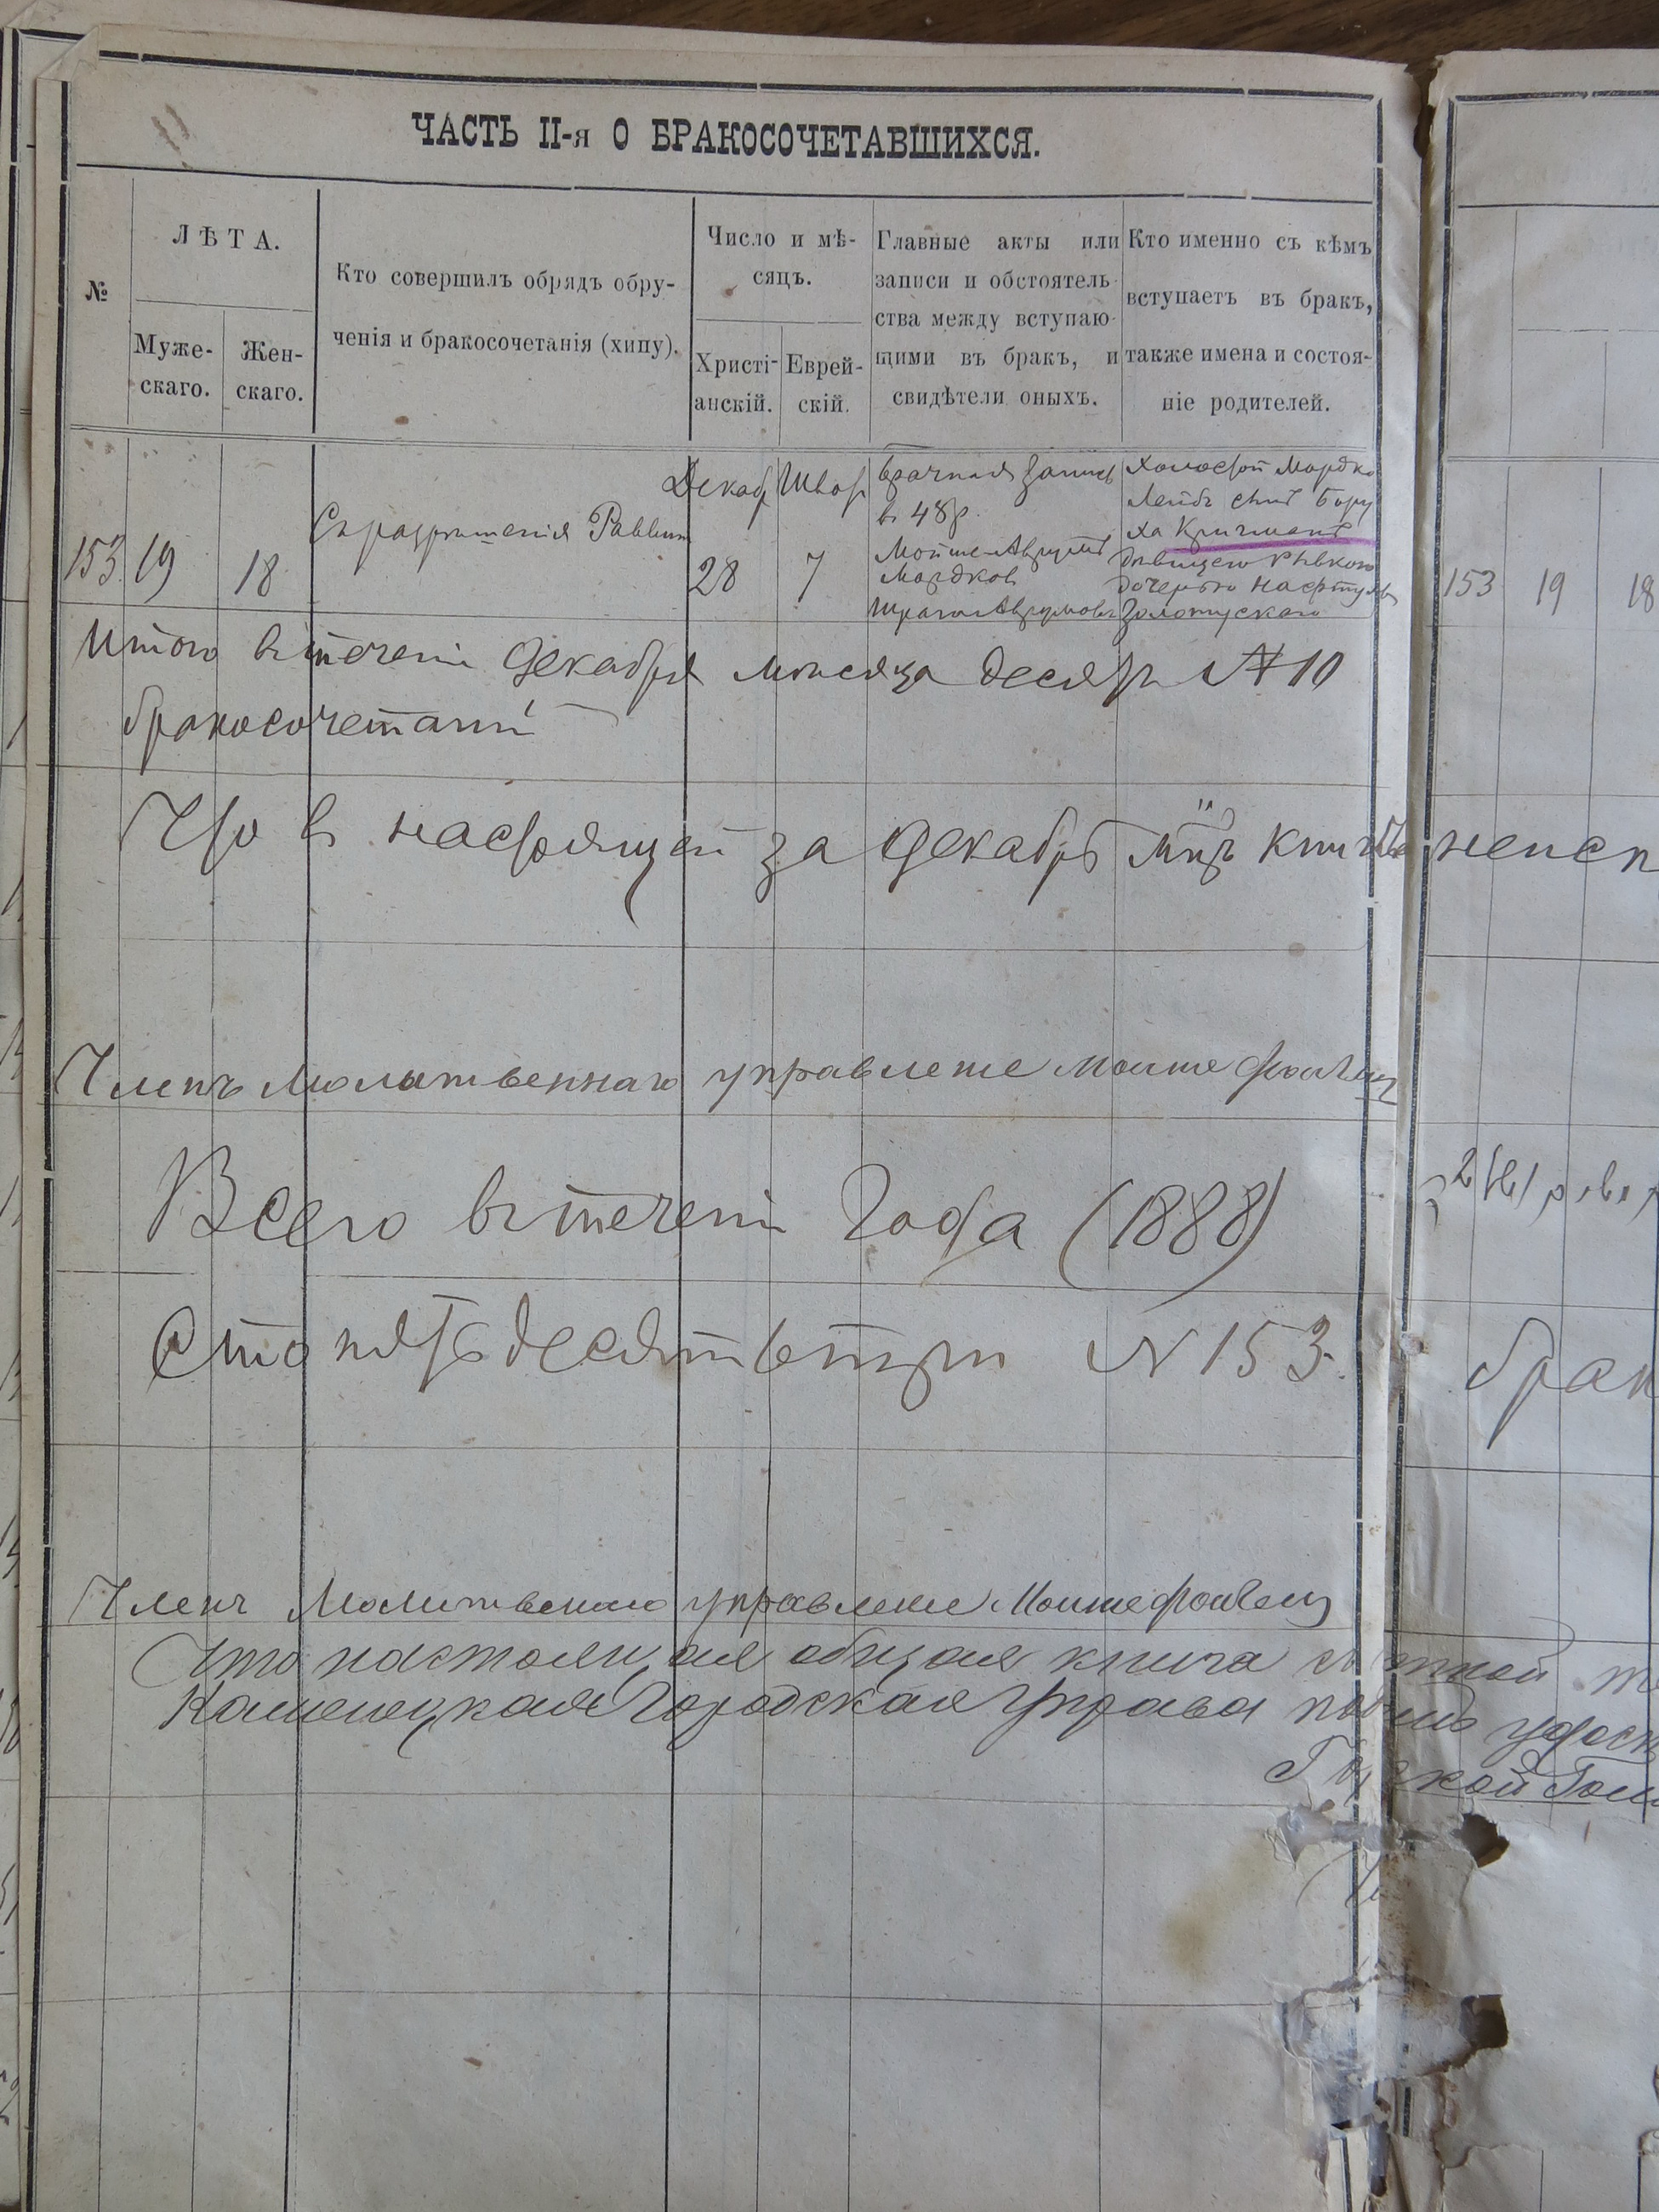 ЧАСТЬ II-я О БРАКОСОЧЕТАВШИХСЯ.
№
ЛѢТА.
Муже-
скаго.
Жен-
скаго.
Кто совершилъ обрядъ обру-
ченія и бракосочетанія (хипу).
Число и мѣ-
сяцъ.
Христі-
анскій.
Еврей-
скій.
Главные акты или
записи и обстоятель-
ства между вступаю-
щими въ бракъ, и
свидѣтели оныхъ.
Кто именно съ кѣмъ
вступаетъ въ бракъ,
также имена и состоя-
ніе родителей.
153
19
18
Съ разрешенія Раввина
Декаб
28
7
Брачная запись
в 48 р.
Мордков
Холостой Мордко
Лейбъ сынъ Бору
ха Кричманъ
девицею Рывкою
дочерью Нафтулы
Золотускаго
153 19 18
Итого в течени Декабря месяца десять № 10
бракосочетаний
Что в настоящей за Декабрь мц книге неисп
Членъ Молитвеннаго управление Мошше
Всего в течени года (1888)
Сто пятьдесятъ три № 153.
брак
Членъ Молитвеннаго управление Мошше
Что настоящая общая книга
Каменецкая Городская Управа